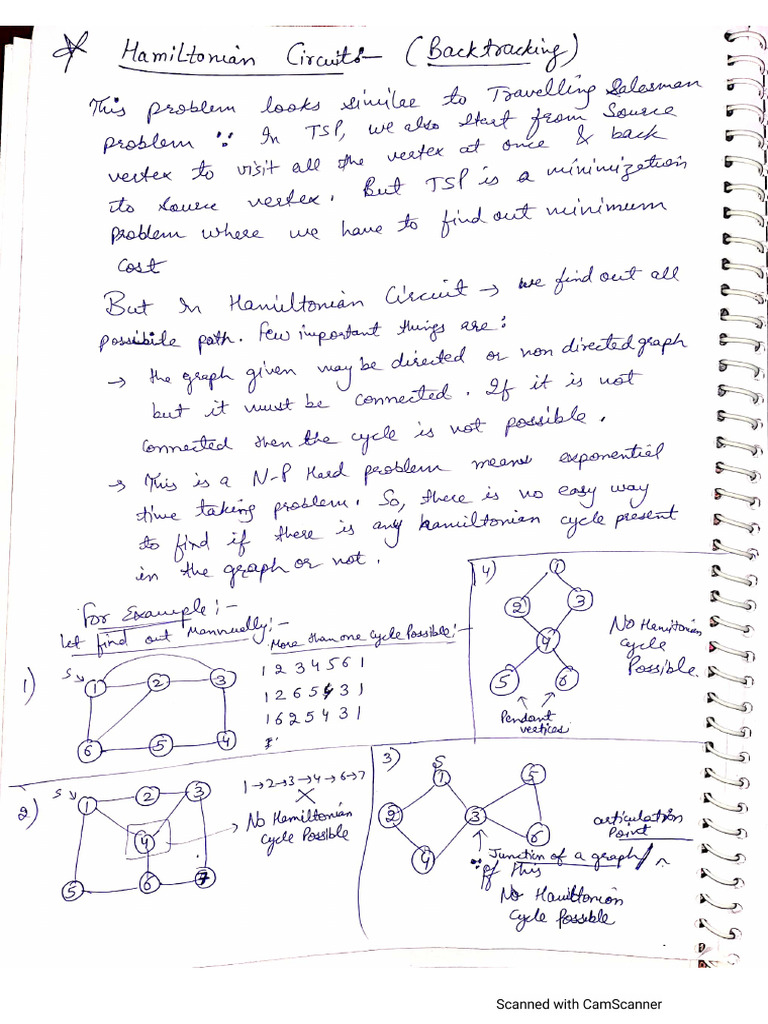 Hamiltonian Circuits - (Backtracking)
This problem looks similee to Travelling Salesman
problem ∵ In TSP, we also start from Source
vertex to visit all the vertex at once & back
to source vertex. But TSP is a minimization
problem where we have to find out minimum
cost
But In Hamiltonian Circuit → we find out all
possibile path. Few important things are:
→ the graph given may be directed or non directed graph
but it must be connected. If it is not
connected then the cycle is not possible.
→ This is a N-P Hard problem means exponential
time taking problem. So, there is no easy way
to find if there is any hamiltonian cycle present
in the graph or not.
For Example:-
Let find out Mannually:-
More than one cycle Possible:-
1)
S
1 2 3
6 5 4
1 2 3 4 5 6 1
1 2 6 5 4 3 1
1 6 2 5 4 3 1
4)
1
2 3
4
5 6
Pendant
vertices
No Hamiltonian
cycle
Possible.
2)
S
1 2 3
4
5 6 7
1→2→3→4→6→7
×
No Hamiltonian
cycle Possible
3)
S
1 5
2 3
4 6
articulation
Point
∵ Junction of a graph
of this
No Hamiltonian
cycle Possible
Scanned with CamScanner